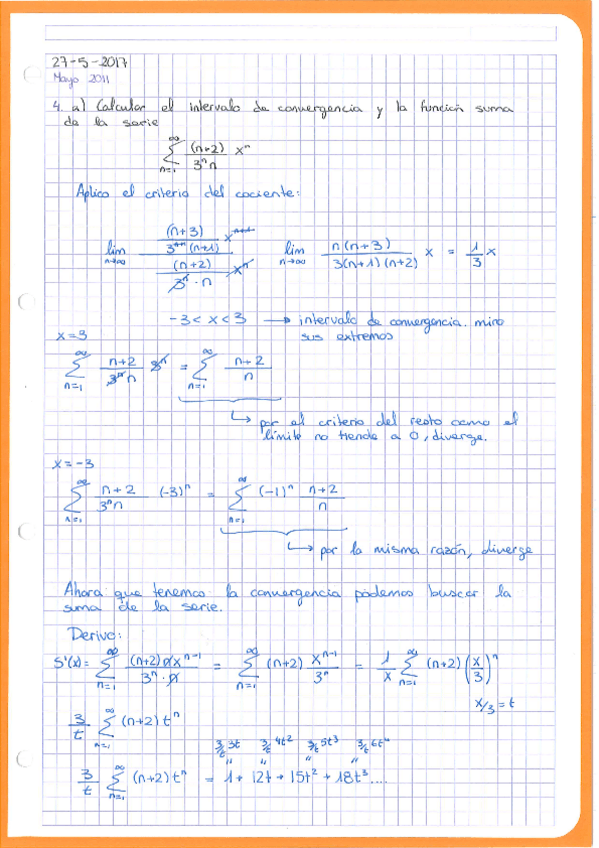 27-5-2017
Mayo 2011
4. a) Calcular el intervalo de convergencia y la función suma
de la serie
∞ Σ n=1 (n+2)/(3ⁿn) xⁿ
Aplico el criterio del cociente:
lim n→∞ ((n+3)/(3ⁿ⁺¹(n+1)) xⁿ⁺¹)/((n+2)/(3ⁿ·n) xⁿ) lim n→∞ n(n+3)/(3(n+1)(n+2)) x = 1/3 x
-3 < x < 3 → intervalo de convergencia. miro
sus extremos
x=3
∞ Σ n=1 (n+2)/(3ⁿn) 3ⁿ = ∞ Σ n=1 (n+2)/n
↳ por el criterio del resto como el
límite no tiende a 0, diverge.
x=-3
∞ Σ n=1 (n+2)/(3ⁿn) (-3)ⁿ = ∞ Σ n=1 (-1)ⁿ (n+2)/n
↳ por la misma razón, diverge
Ahora que tenemos la convergencia podemos buscar la
suma de la serie.
Derivo:
S'(x)= ∞ Σ n=1 (n+2)n xⁿ⁻¹/(3ⁿ·n) = ∞ Σ n=1 (n+2) xⁿ⁻¹/3ⁿ = 1/x ∞ Σ n=1 (n+2) (x/3)ⁿ
x/3 = t
3/t ∞ Σ n=1 (n+2) tⁿ
3/t 3t 3/t 4t² 3/t 5t³ 3/t 6t⁴
" " " "
3/t ∞ Σ n=1 (n+2) tⁿ = 1 + 12t + 15t² + 18t³ ....